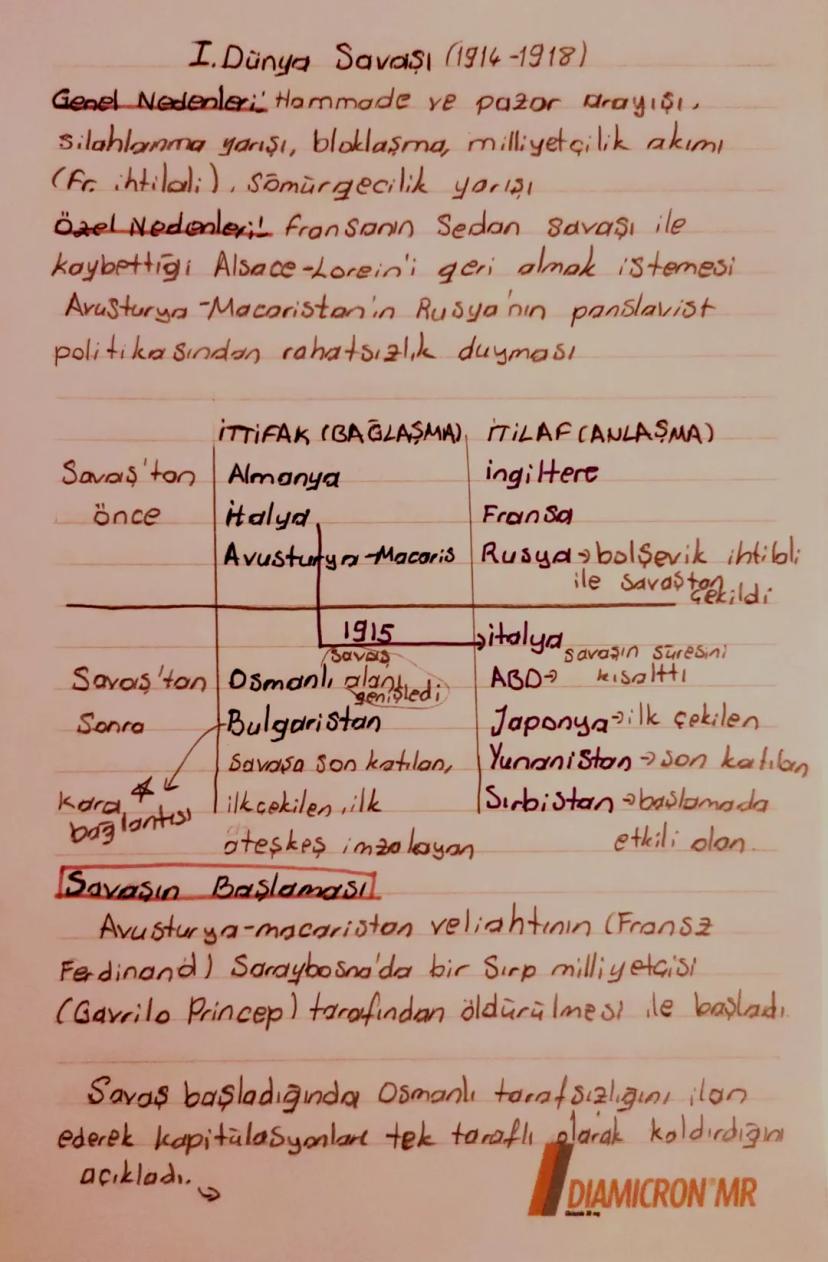 I. Dünya Savaşı (1914-1918)
Genel Nedenleri: Hammade ve pazar arayışı,
silahlanma yarışı, bloklaşma, milliyetçilik akımı
(Fr. ihtilali), Sömürgecilik yarışı
Özel Nedenleri: Fransanın Sedan savaşı ile
kaybettiği Alsace-Lorein'i geri almak istemesi
Avusturya-Macaristan'ın Rusya'nın panslavist
politikasından rahatsızlık duyması
İTTİFAK (BAĞLAŞMA) İTİLAF (ANLAŞMA)
Savaş'tan Almanya İngiltere
önce İtalya Fransa
Avusturya-Macaris Rusya→bolşevik ihtilali
ile savaştan
çekildi
1915 İtalya
savaş savaşın süresini
Savaş'tan Osmanlı alanı ABD→ kısalttı
genişledi
Sonra Bulgaristan Japonya→ilk çekilen
savaşa son katılan, Yunanistan→son katılan
kara ilk çekilen, ilk Sırbistan→başlamada
bağlantısı ateşkeş imzalayan etkili olan
Savaşın Başlaması
Avusturya-macaristan veliahtının (Fransz
Ferdinand) Saraybosna'da bir Sırp milliyetçisi
(Gavrilo Princep) tarafından öldürülmesi ile başladı.
Savaş başladığında Osmanlı tarafsızlığını ilan
ederek kapitülasyonları tek taraflı olarak kaldırdığını
açıkladı.
DIAMICRON MR